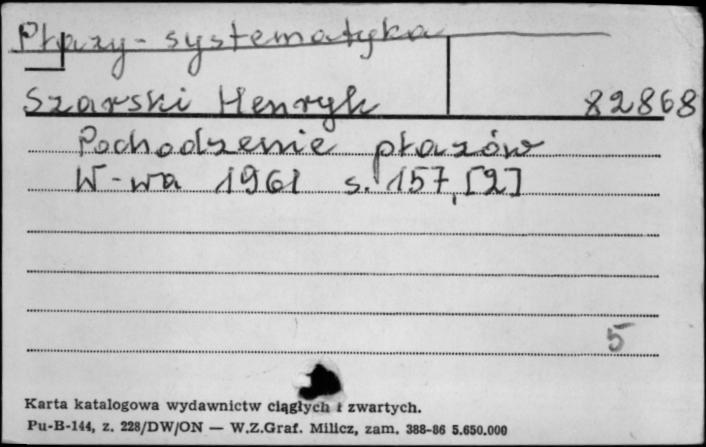 Płazy - systematyka
Szarski Henryk 82868
Pochodzenie płazów
W-wa 1961 s. 157, [2]
5
Karta katalogowa wydawnictw ciągłych i zwartych.
Pu-B-144, z. 228/DW/ON — W.Z.Graf. Milicz, zam. 388-86 5.650.000